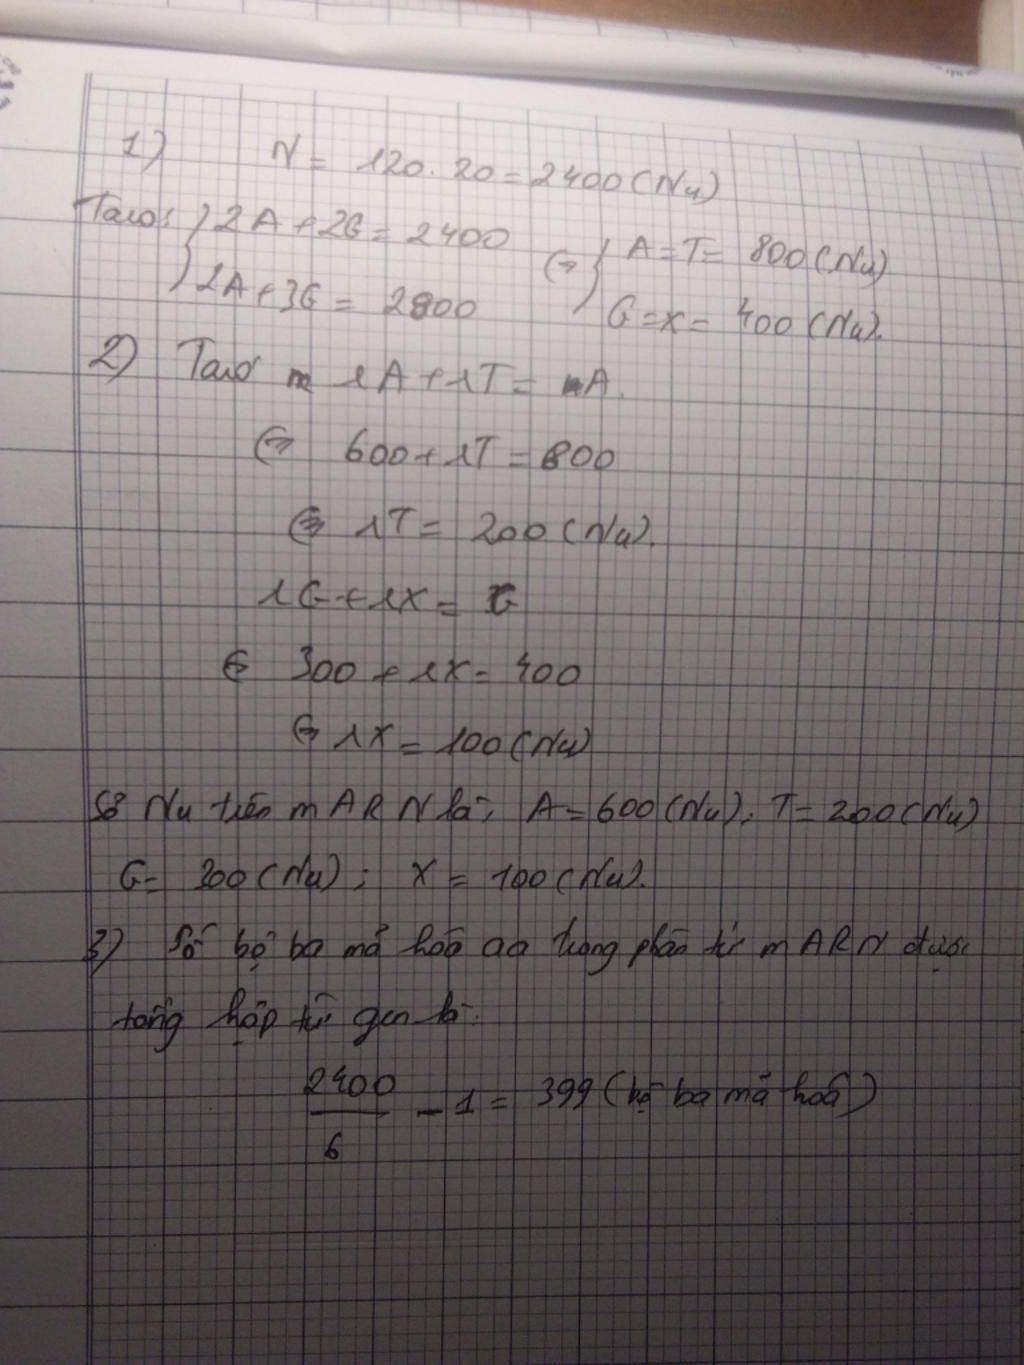 1) N = 120. 20 = 2400 (Nu)
Ta có: { 2A + 2G = 2400 (=> { A = T = 800 (Nu)
2A + 3G = 2800 G = X = 400 (Nu).
2) Ta có 1A + 1T = A.
<=> 600 + 1T = 800
<=> 1T = 200 (Nu).
1G + 1X = G
<=> 300 + 1X = 400
<=> 1X = 100 (Nu)
Số Nu trên mARN là: A = 600 (Nu); T = 200 (Nu)
G = 300 (Nu); X = 100 (Nu).
3) Số bộ ba mã hoá aa trong phân tử mARN được
tổng hợp từ gen là:
2400/6 - 1 = 399 (bộ ba mã hoá)